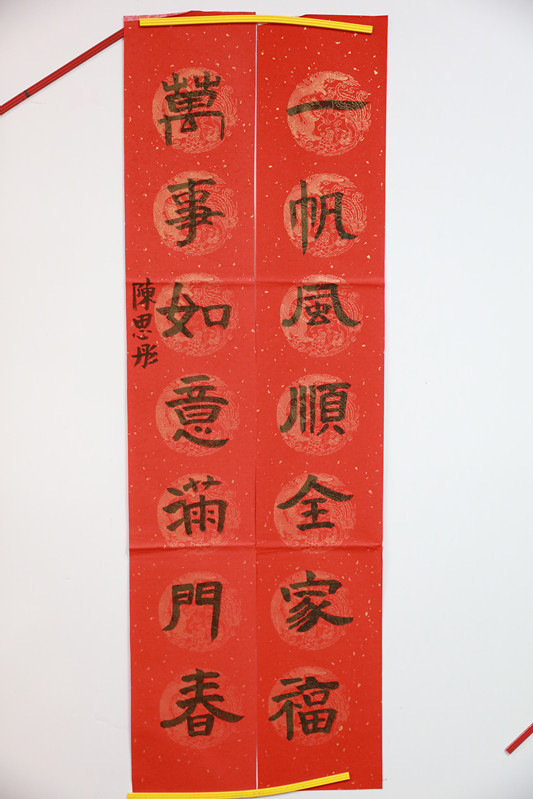 一帆風順全家福
萬事如意滿門春
陳思彤